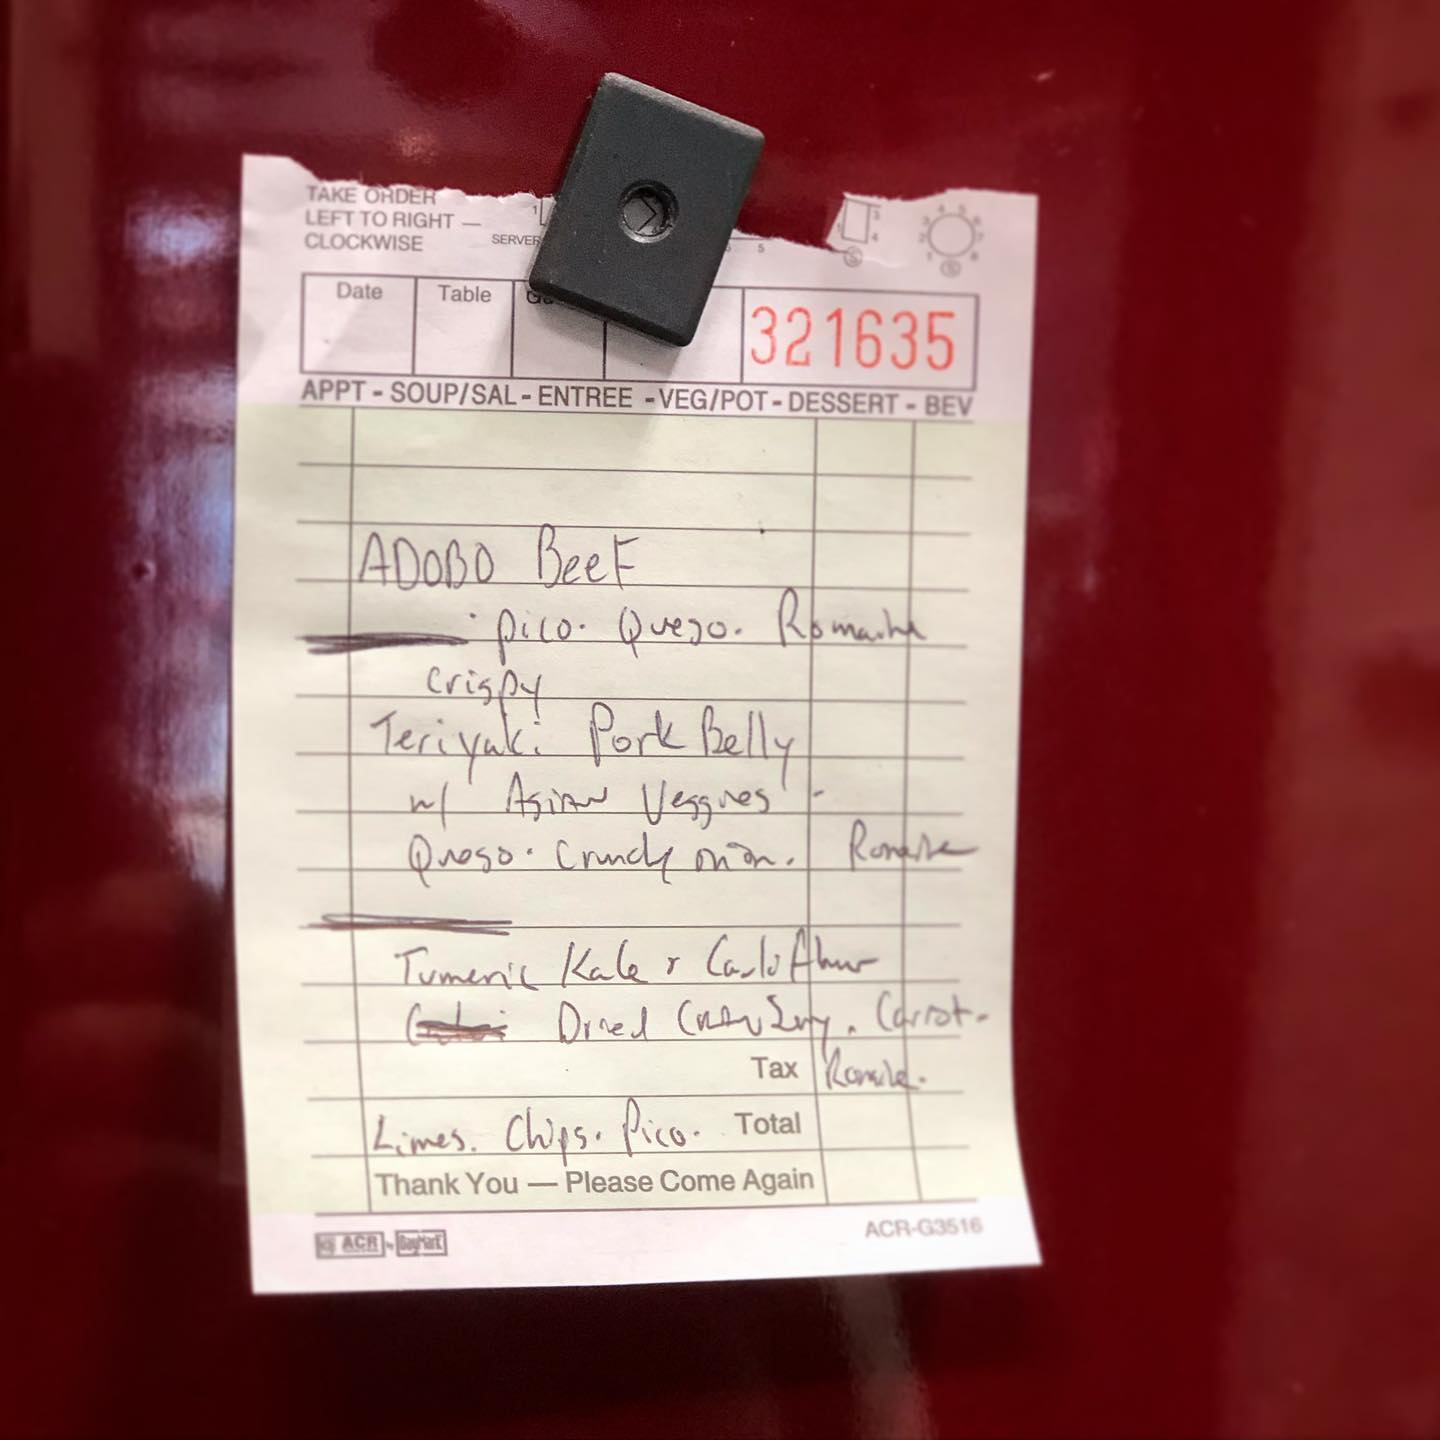 TAKE ORDER
LEFT TO RIGHT —
CLOCKWISE
SERVER
Date Table 321635
APPT - SOUP/SAL - ENTREE - VEG/POT - DESSERT - BEV
ADOBO BeeF
· pico. Queso. Romaine
crispy
Teriyaki Pork Belly
w/ Asian Veggies -
Queso. Crunchy onion. Romaine
Tumeric Kale & Cauliflower
Dried Cranberry. Carrot.
Tax Romaine.
Limes. Chips. Pico. Total
Thank You — Please Come Again
ACR by DayMark ACR-G3516